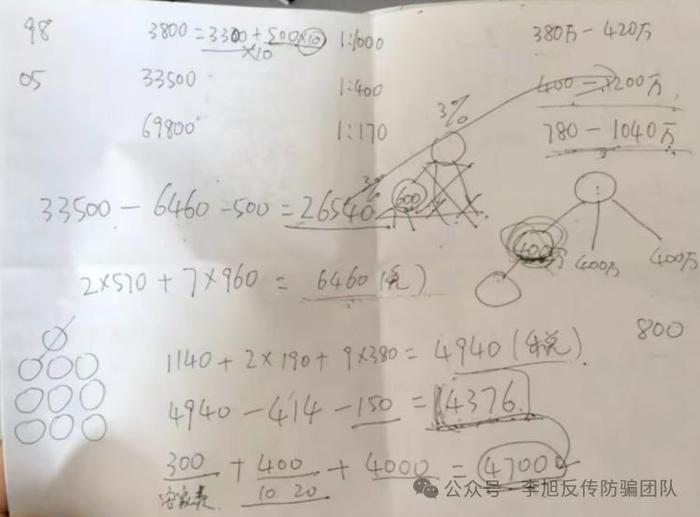 98 3800=3300+500×10 1:1000 380万-420万
×10
05 33500 1:400 400-1200万
69800 1:170 3% 780-1040万
3%
33500-6460-500=26540 600
400万 400万 400万
2×570+7×960=6460(税)
800
1140+2×190+9×380=4940(税)
4940-414-150=4376
300+400+4000=47000
10 20
公众号—李旭反传防骗团队